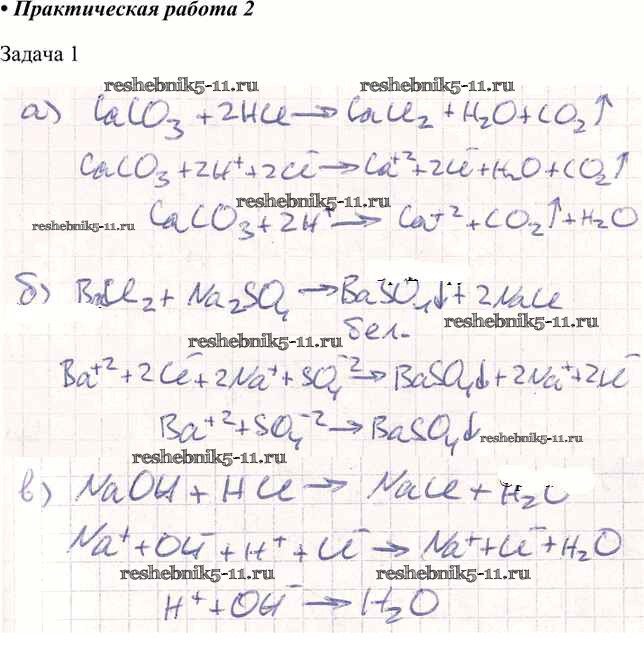 • Практическая работа 2
Задача 1
reshebnik5-11.ru reshebnik5-11.ru
а) CaCO₃ + 2HCl → CaCl₂ + H₂O + CO₂↑
CaCO₃ + 2H⁺ + 2Cl⁻ → Ca⁺² + 2Cl⁻ + H₂O + CO₂↑
reshebnik5-11.ru
reshebnik5-11.ru
CaCO₃ + 2H⁺ → Ca⁺² + CO₂↑ + H₂O
б) BaCl₂ + Na₂SO₄ → BaSO₄↓ + 2NaCl
бел.
reshebnik5-11.ru
reshebnik5-11.ru
Ba⁺² + 2Cl⁻ + 2Na⁺ + SO₄⁻² → BaSO₄↓ + 2Na⁺ + 2Cl⁻
Ba⁺² + SO₄⁻² → BaSO₄↓
reshebnik5-11.ru
в) NaOH + HCl → NaCl + H₂O
Na⁺ + OH⁻ + H⁺ + Cl⁻ → Na⁺ + Cl⁻ + H₂O
reshebnik5-11.ru reshebnik5-11.ru
H⁺ + OH⁻ → H₂O